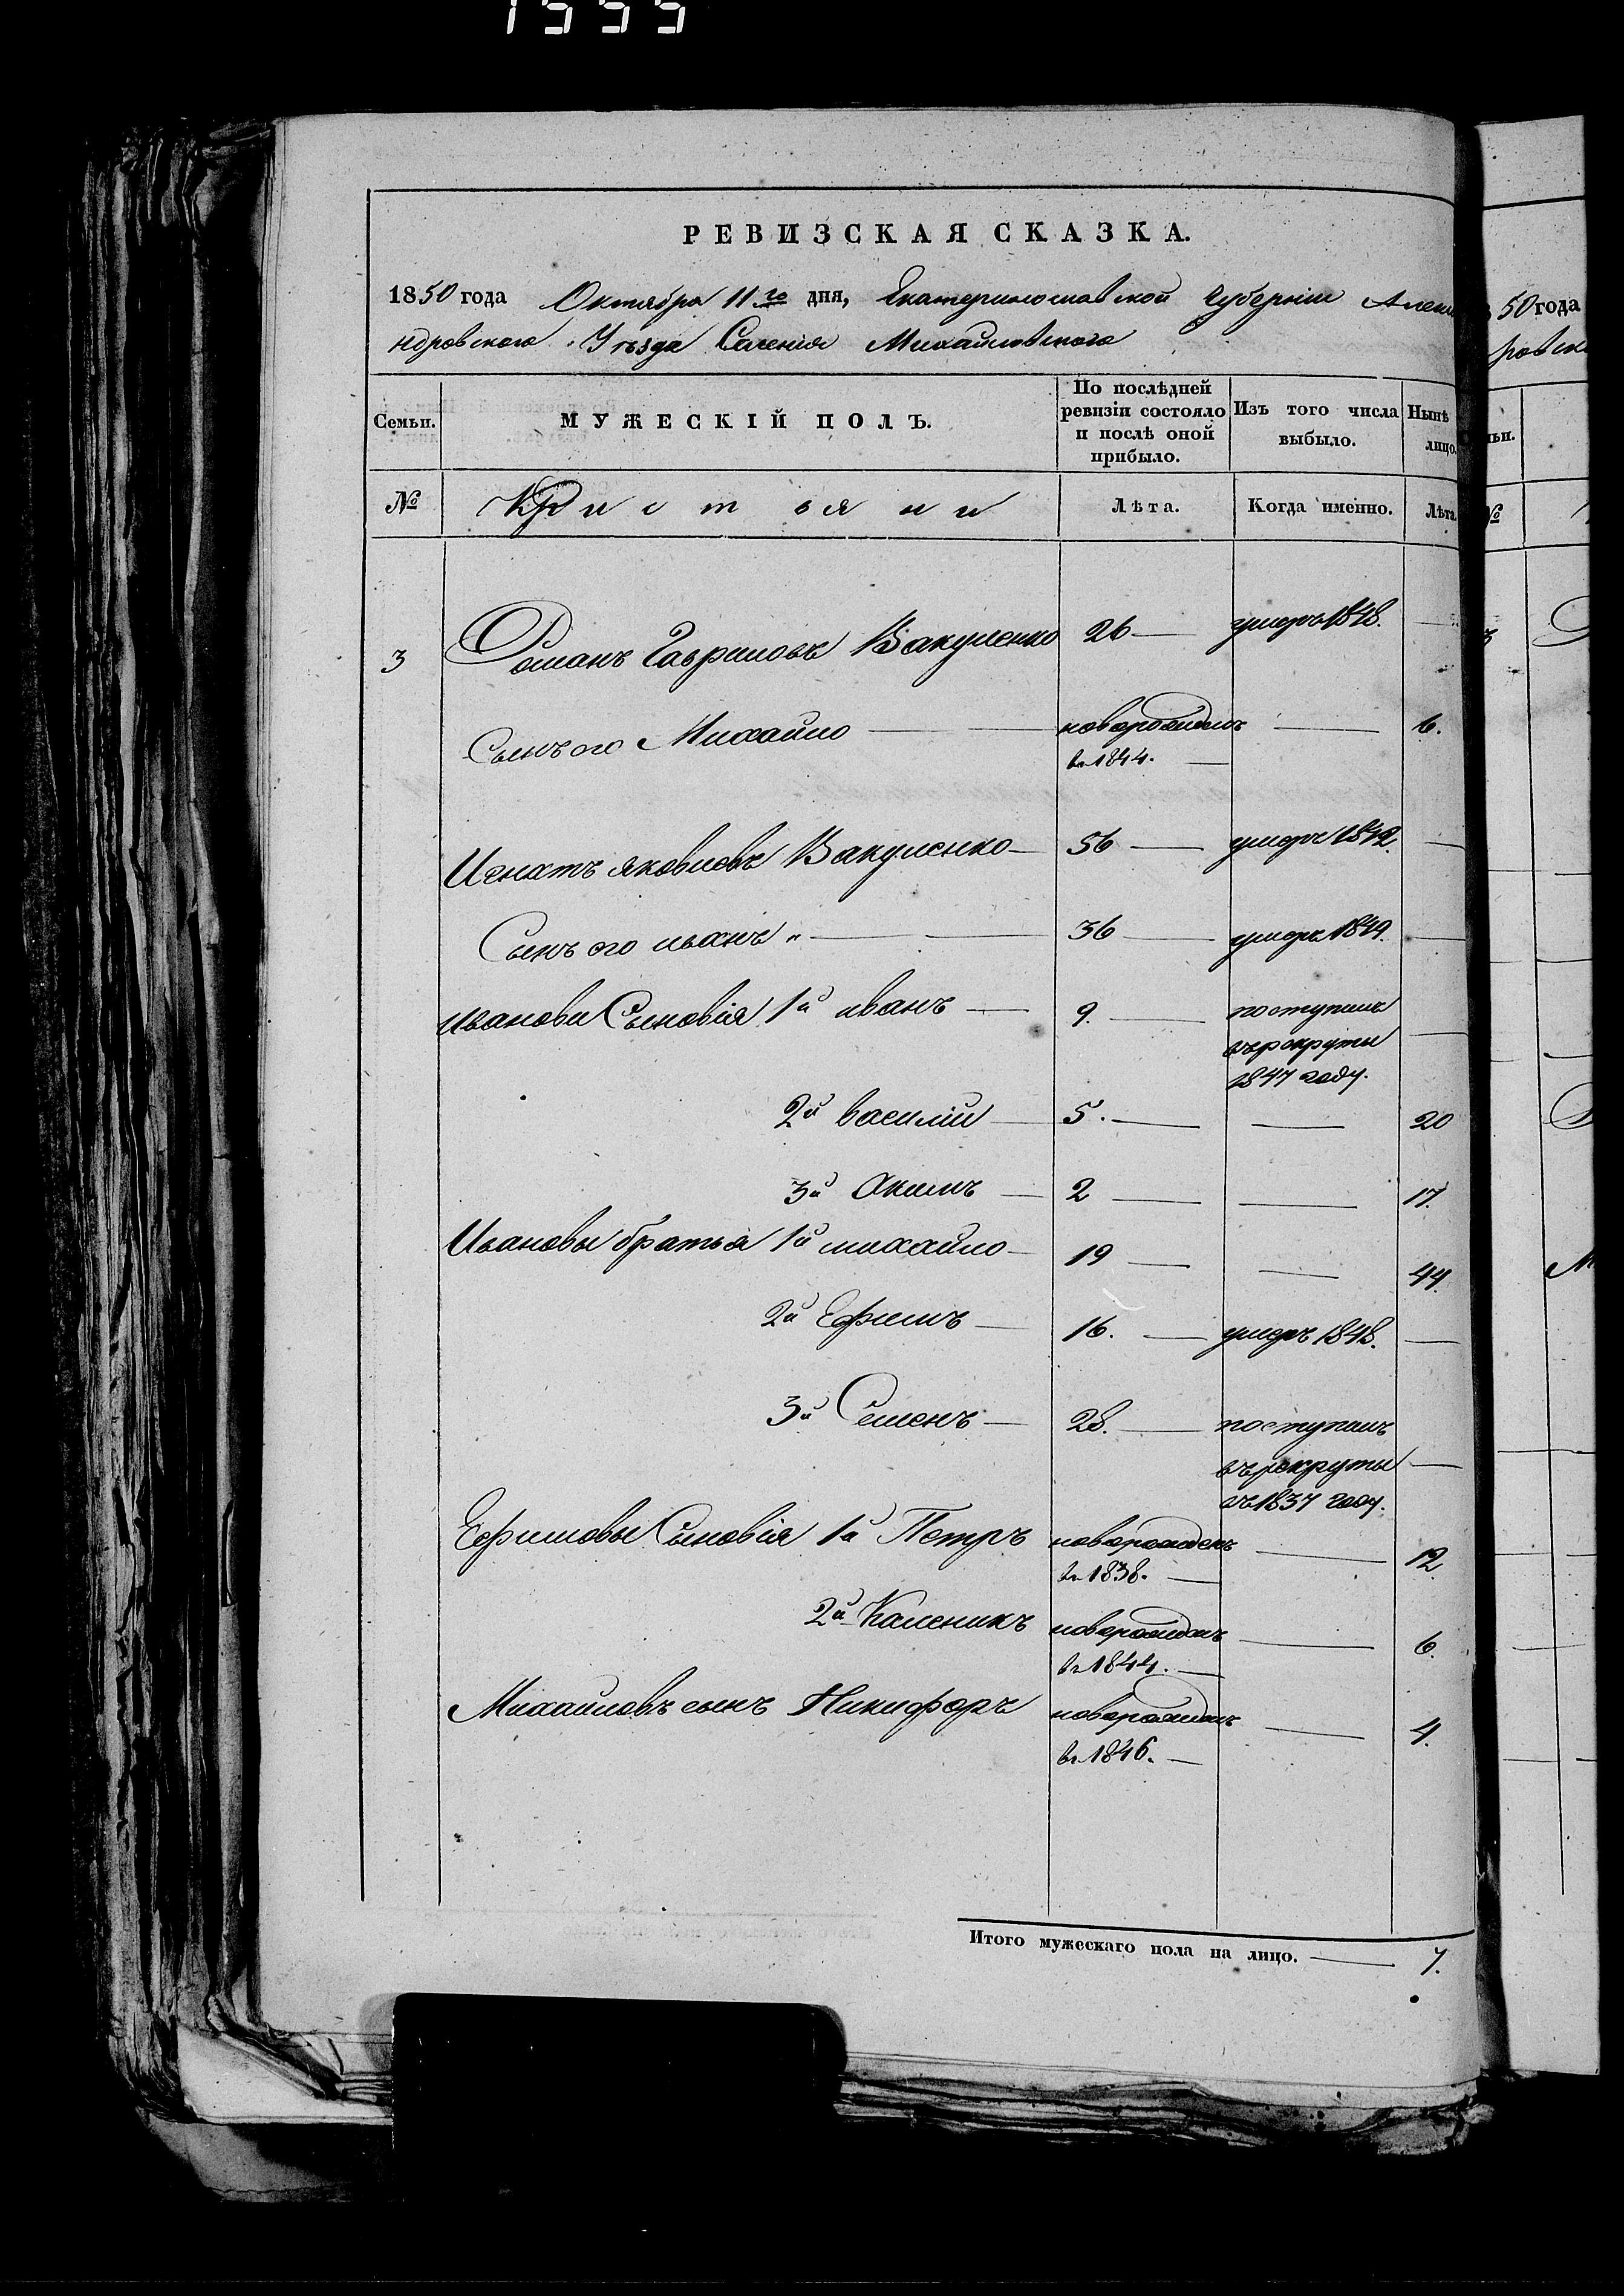 1555
РЕВИЗСКАЯ СКАЗКА.
1850 года Октября 11го дня, Екатеринославской Губерніи Алекса
ндровского Уезда Селенія Михайловского
Семьи. МУЖЕСКІЙ ПОЛЪ. По послѣдней ревизіи состояло и послѣ оной прибыло. Изъ того числа выбыло. Нынѣ лицо.
№ Кристьяни Лѣта. Когда именно. Лѣта
3 Романъ Гавриловъ Вакуленко 26 — умеръ 1848. —
Сынъ его Михайло — новорожденъ — 6.
въ 1844. —
Игнатъ яковлевъ Вакуленко — 56 — умеръ 1842. —
Сынъ его иванъ „ — 36 — умеръ 1849. —
Иванови Сыновія 1й иванъ — 9. — поступилъ
въ рекруты —
1847 году.
2й василій — 5. — — 20
3й Акимъ — 2 — — 17.
Ивановы братья 1й михайло — 19 — — 44.
2й Ефимъ — 16. — умеръ 1848. —
3й Семенъ — 28. — поступилъ
въ рекруты —
въ 1837 году.
Ефимовы Сыновія 1й Петръ новорожденъ — 12.
въ 1838. —
2й Каленикъ новорожденъ — 6.
въ 1844. —
Михаиловъ сынъ Никифоръ новорожденъ — 4.
въ 1846. —
Итого мужескаго пола на лицо. — 7.
50 года
№
3